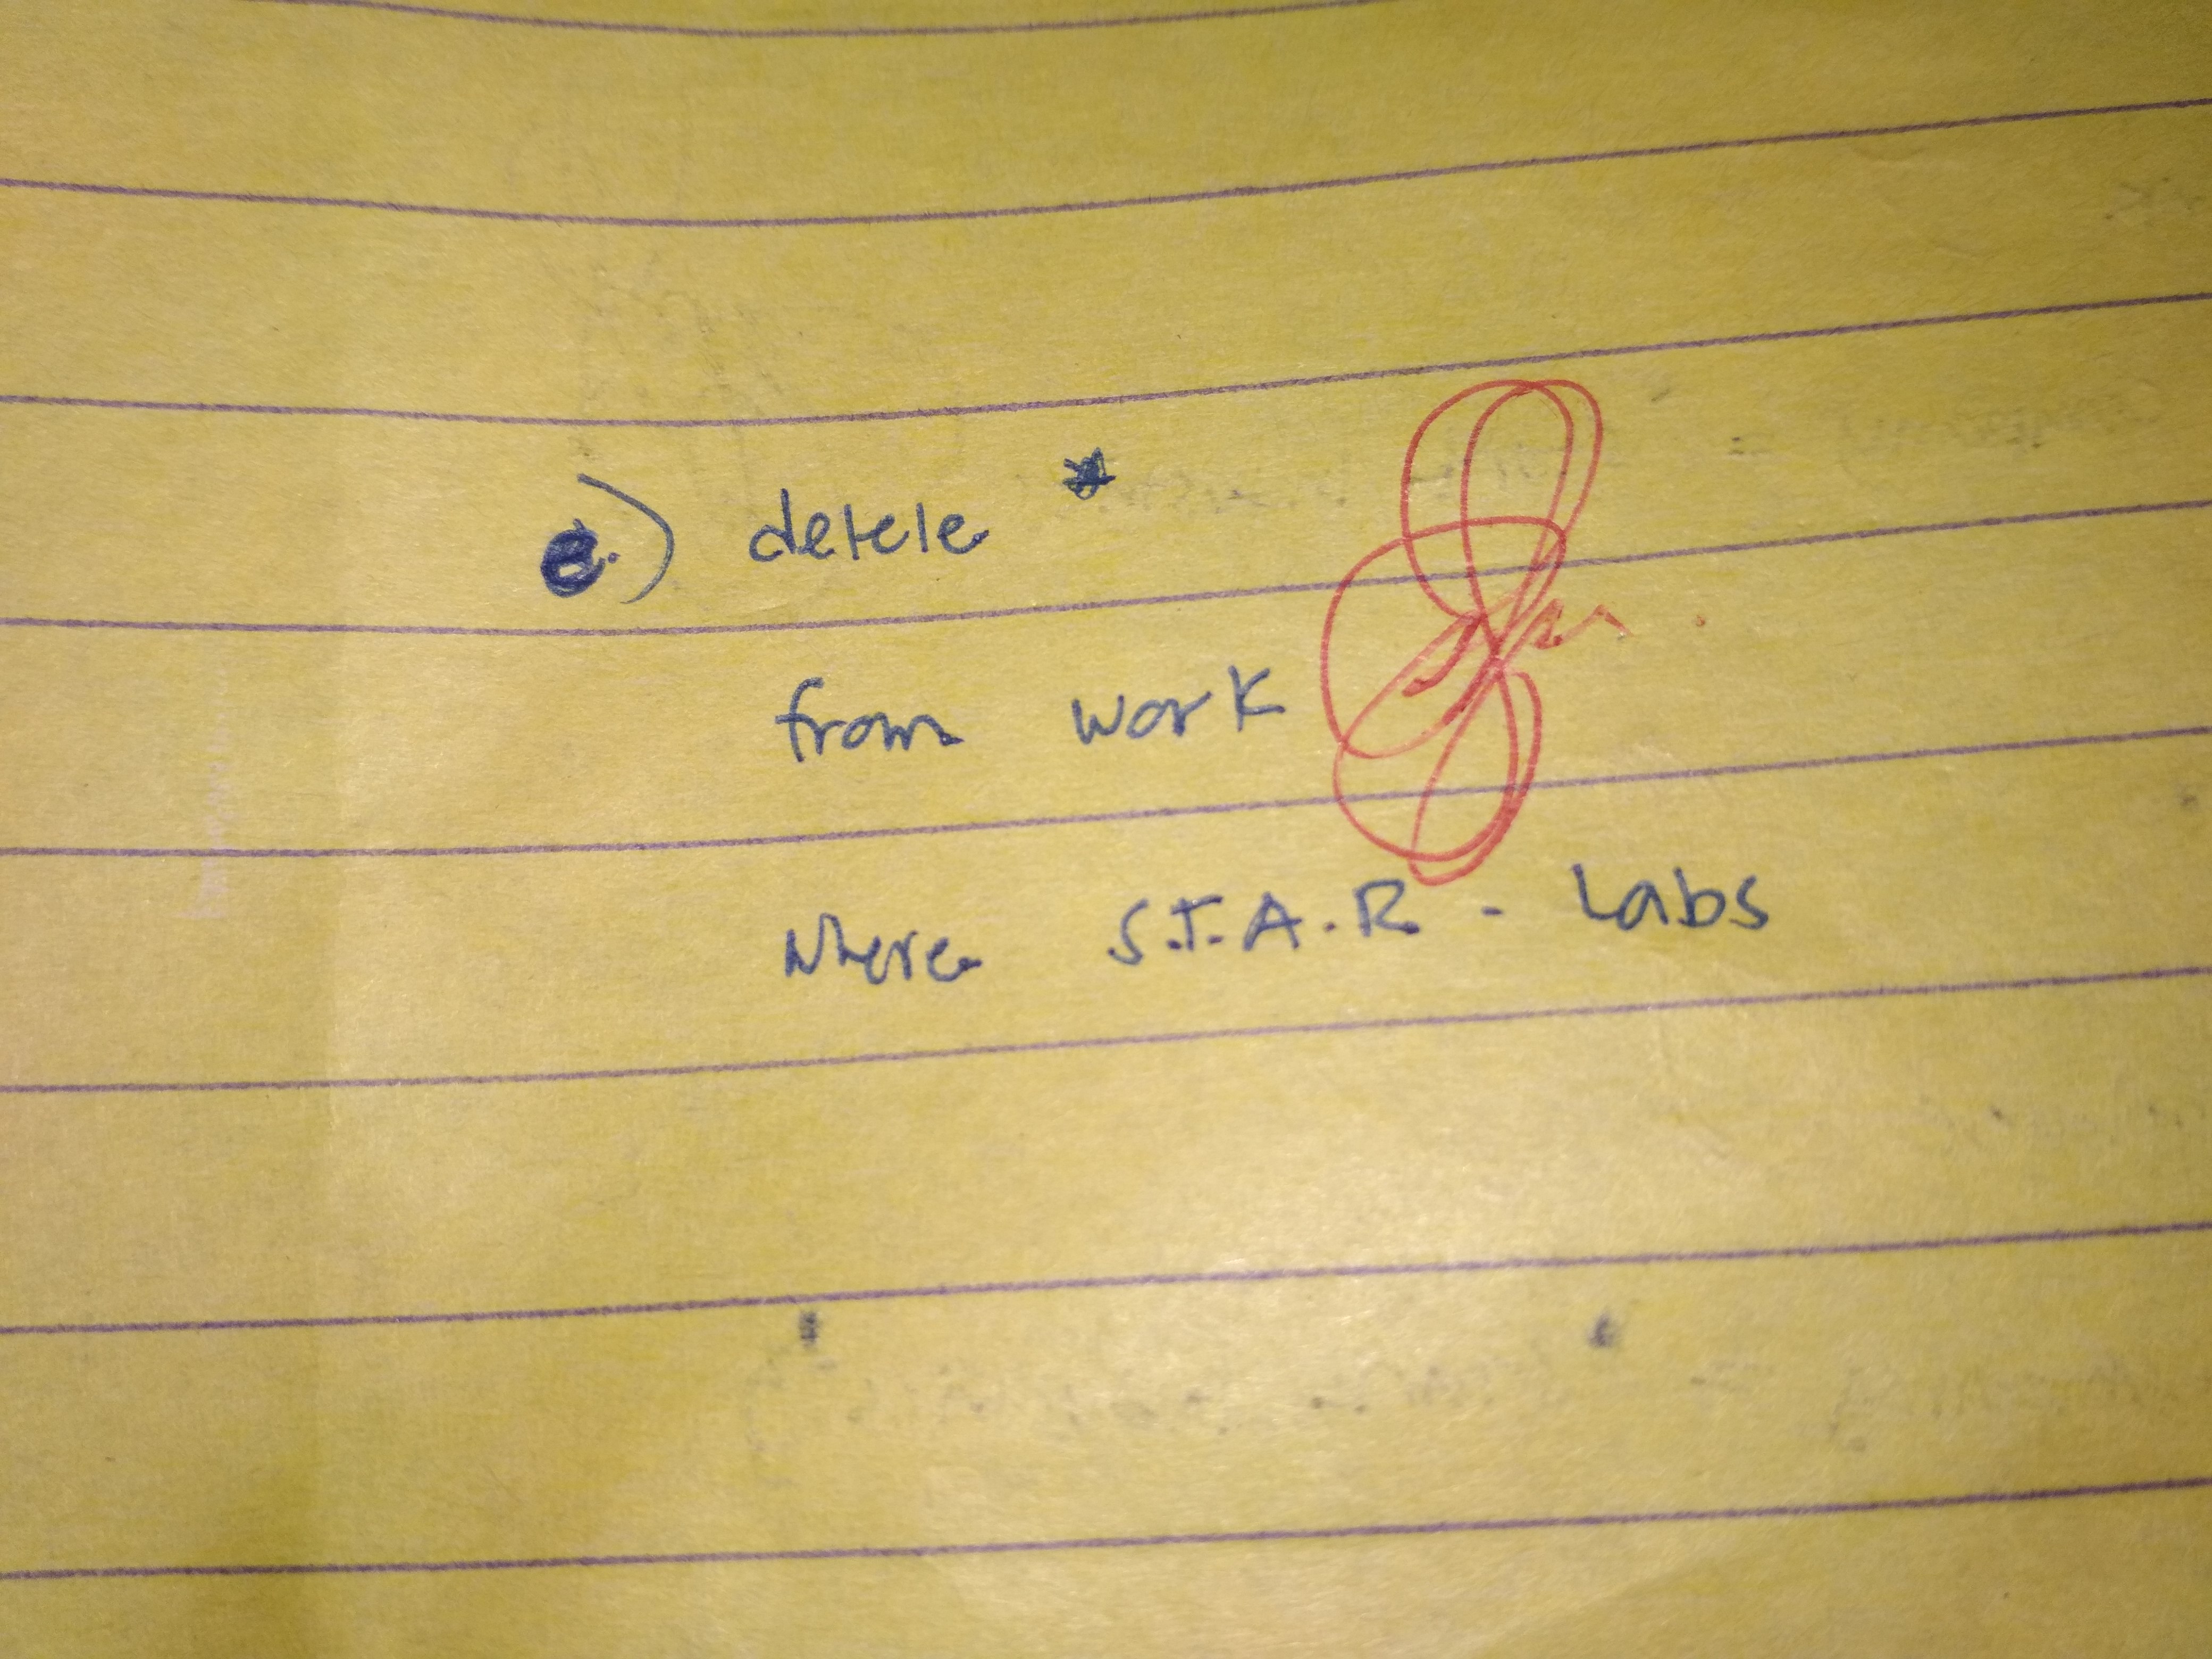 e.) delete *
from work
where S.T.A.R - Labs